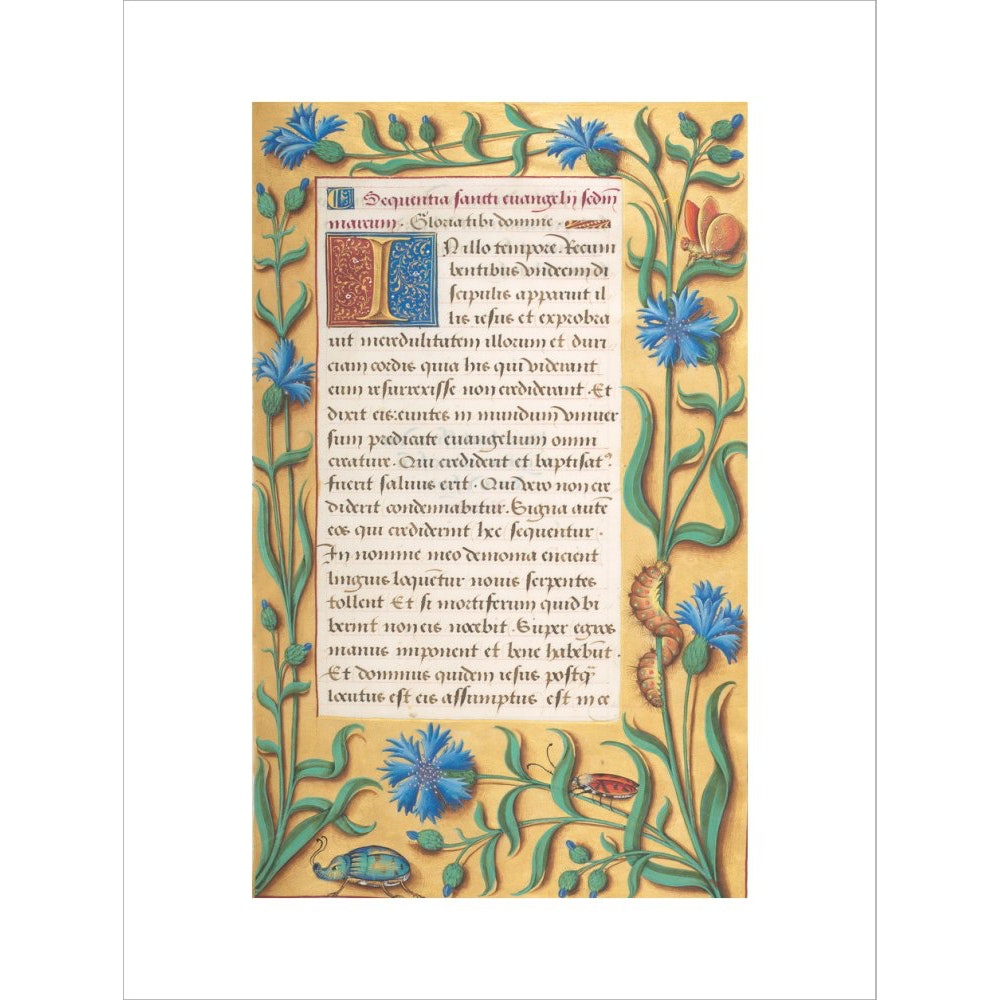 Sequentia sancti evangelij sedm
marcum. Gloria tibi domine.
IN illo tempore. Recum
bentibus vndecim di
scipulis apparuit il
lis iesus et exprobra
uit incredulitatem illorum et duri
ciam cordis quia his qui viderant
eum resurrexisse non crediderant. Et
dixit eis: euntes in mundum vniuer
sum predicate euangelium omni
creature. Qui crediderit et baptisatꝰ
fuerit saluus erit. Qui vero non cre
diderit condennabitur. Signa autē
eos qui crediderint hec sequentur.
In nomine meo demonia eiicient
linguis loquentur nouis serpentes
tollent Et si mortiferum quid bi
berint non eis nocebit. Super egros
manus imponent et bene habebūt.
Et dominus quidem iesus postq̄
locutus est eis assumptus est in ce